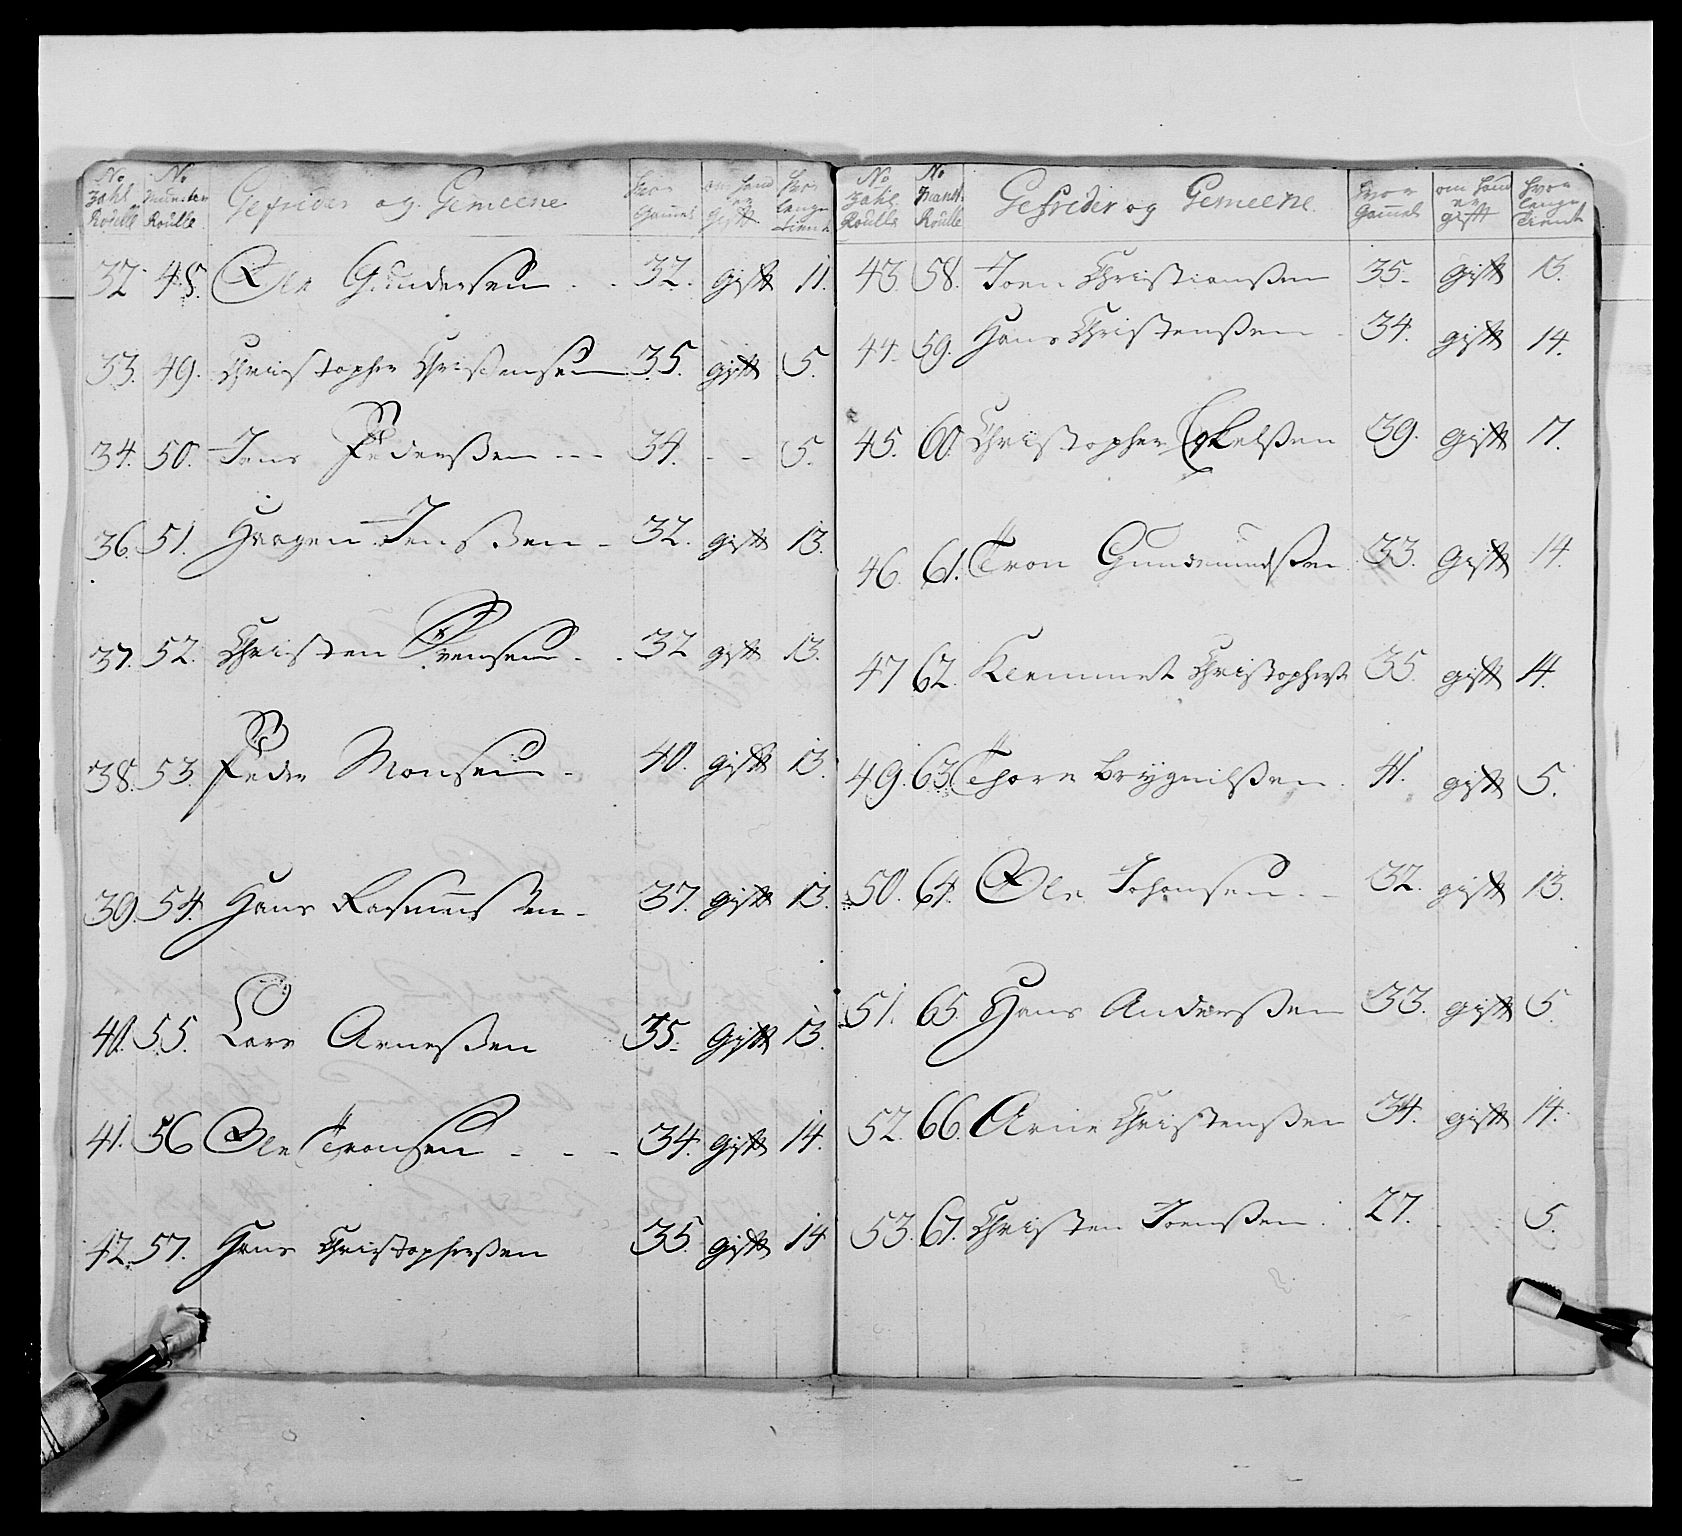 No Zahl Roulle No Munster Roulle Gefrider og Gemeene hvor Gammel om hand er gift hvor lenge tient
32 48. Ole Gundersen 32. gift 11.
33. 49. Christopher Christensen 35. gift 5.
34. 50. Jens Pedersen --- 34. - - 5.
36. 51. Haagen Jenssen - 32. gift 13.
37. 52. Christen Svensen - . 32 gift 13.
38. 53. Peder Monsen - 40. gift 13.
39. 54. Hans Rasmussen - 37. gift 13.
40. 55. Lars Arnessen 35- Gift 13.
41. 56 Ole Tronsen - - - 34. gift 14.
42. 57. Hans Christophersen 35. gift 14
No Zahl Roulle No Manst Roulle Gefrider og Gemeene. hvor Gammel om hand er gift hvor lenge tient
43. 58. Joen Christianssen 35- Gift 13.
44. 59. Hans Christenssen 34. gift 14.
45. 60. Christopher Eskelssen 39. gift 17.
46. 61. Tron Gundemundssen 33. Gift 14.
47 62. Klemmet Christophers 35. gift 14.
49. 63. Thore Brygnilssen. 41. gift 5.
50. 64. Ole Johansen - - 32. gift 13.
51. 65. Hans Anderssen 33. gift 5.
52. 66. Arne Christenssen 34. gift 14.
53. 67. Christen Joenssen. 27. 5.